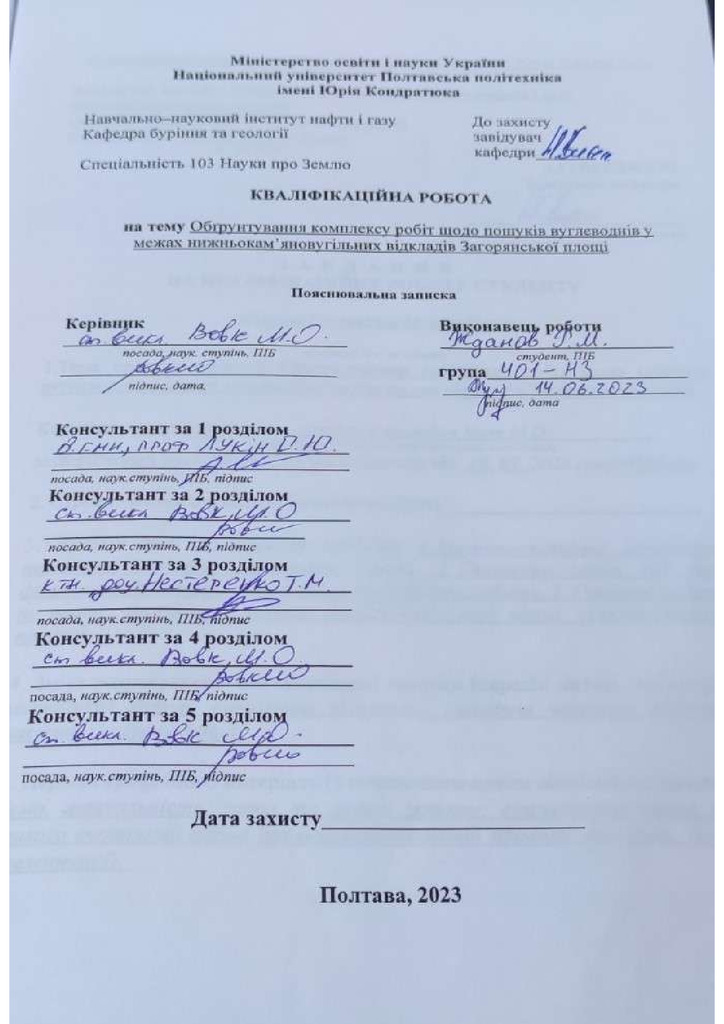 Міністерство освіти і науки України
Національний університет Полтавська політехніка
імені Юрія Кондратюка
Навчально–науковий інститут нафти і газу
Кафедра буріння та геології
Спеціальність 103 Науки про Землю
До захисту
завідувач
кафедри
КВАЛІФІКАЦІЙНА РОБОТА
на тему Обґрунтування комплексу робіт щодо пошуків вуглеводнів у
межах нижньокам’яновугільних відкладів Загорянської площі
Пояснювальна записка
Керівник
ст. викл. Вовк М.О.
посада, наук. ступінь, ПІБ
підпис, дата.
Виконавець роботи
Жданов Г.М.
студент, ПІБ
група 401-НЗ
14.06.2023
підпис, дата
Консультант за 1 розділом
проф Лукін О.Ю.
посада, наук.ступінь, ПІБ, підпис
Консультант за 2 розділом
ст. викл. Вовк М.О
посада, наук.ступінь, ПІБ, підпис
Консультант за 3 розділом
ктн. доц. Нестеренко Т.М.
посада, наук.ступінь, ПІБ, підпис
Консультант за 4 розділом
ст викл. Вовк М.О
посада, наук.ступінь, ПІБ, підпис
Консультант за 5 розділом
ст. викл. Вовк М.О.
посада, наук.ступінь, ПІБ, підпис
Дата захисту
Полтава, 2023